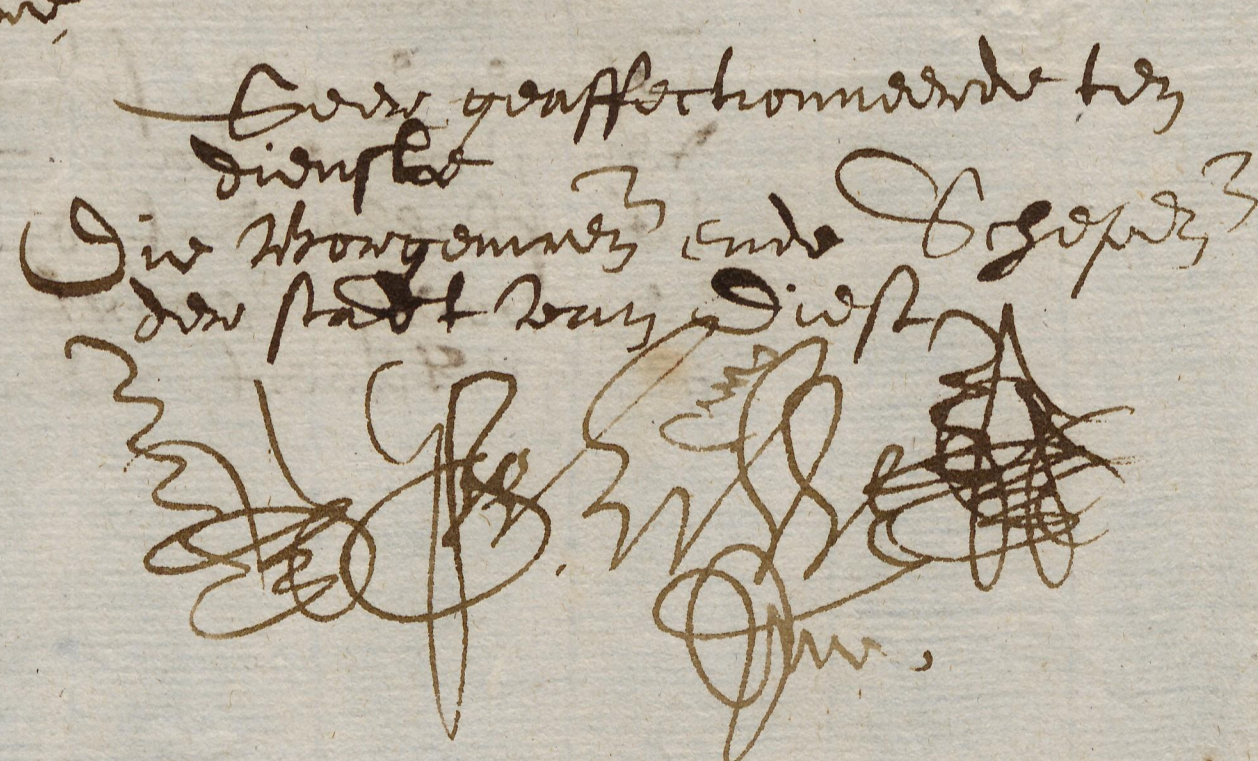 Seer geaffectionneerde ten
dienste
Die Borgemren ende Schepen
der stadt van Diest